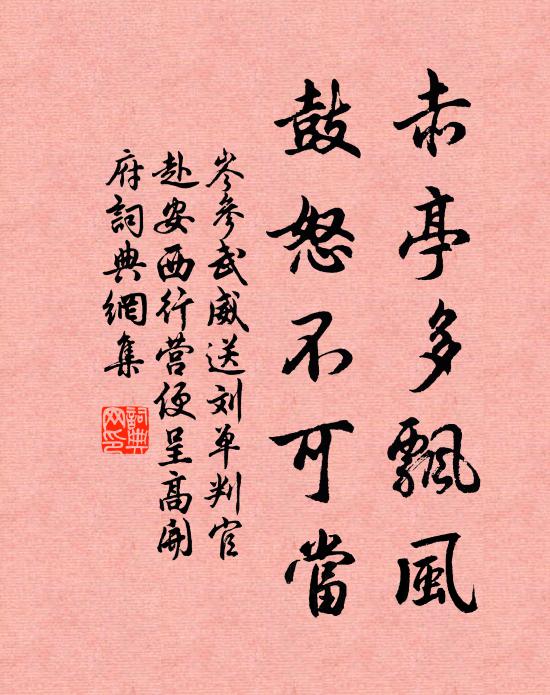 赤亭多飄風
鼓怒不可當
岑參武威送刘单判官
赴安西行营便呈高開
府詞典網集
詞典
网印